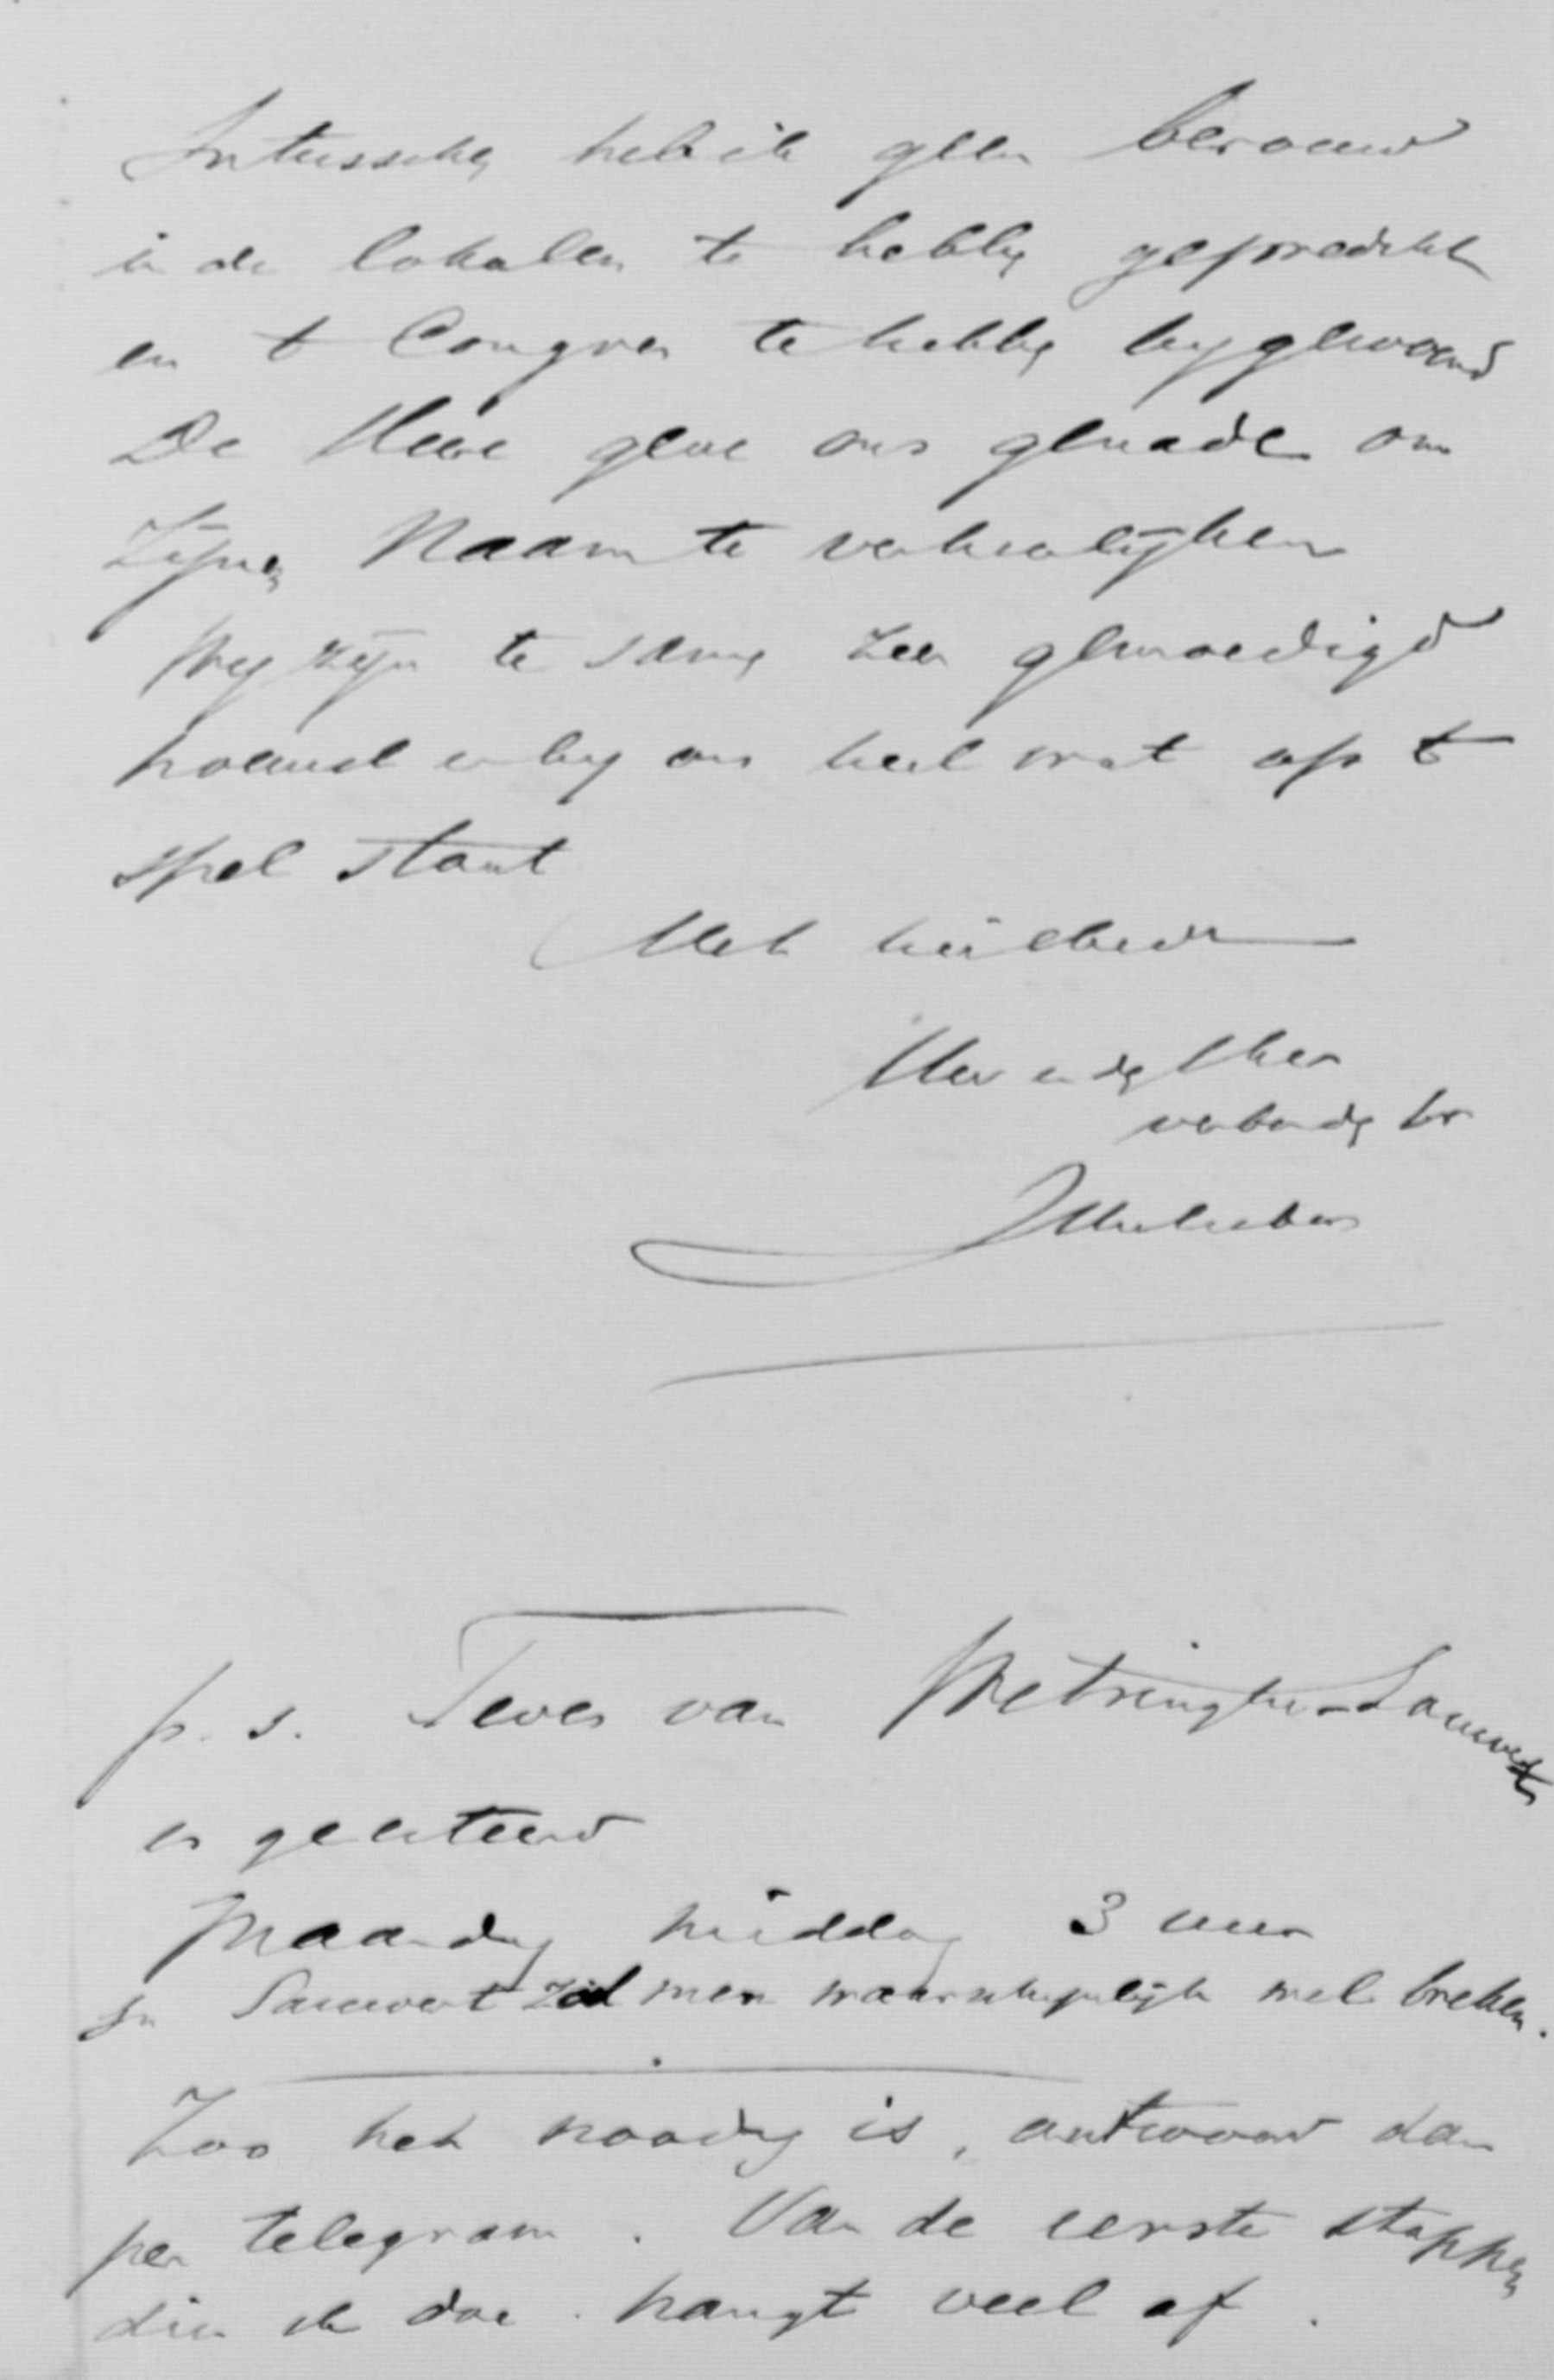 Intusschen heb ik geen berouw
in de lokalen te hebben gepredikt
en 't Congres te hebben bygewoond
De Heere geve ons genade om
Zijnen Naam te verheerlijken
Wy zijn te samen zeer gemoedigd
hoewel er by ons heel wat op 't
spel staat
Met heilbede
Uw in den Heer
verbonden br
p. s. Teves van Wetsinghe-Sauwert
is geciteerd
Maandag middag 3 uur
In Sauwert zal men waarschynlijk wel breken.
Zoo het noodig is, antwoord dan
per telegram. Van de eerste stappen
die ik doe hangt veel af.